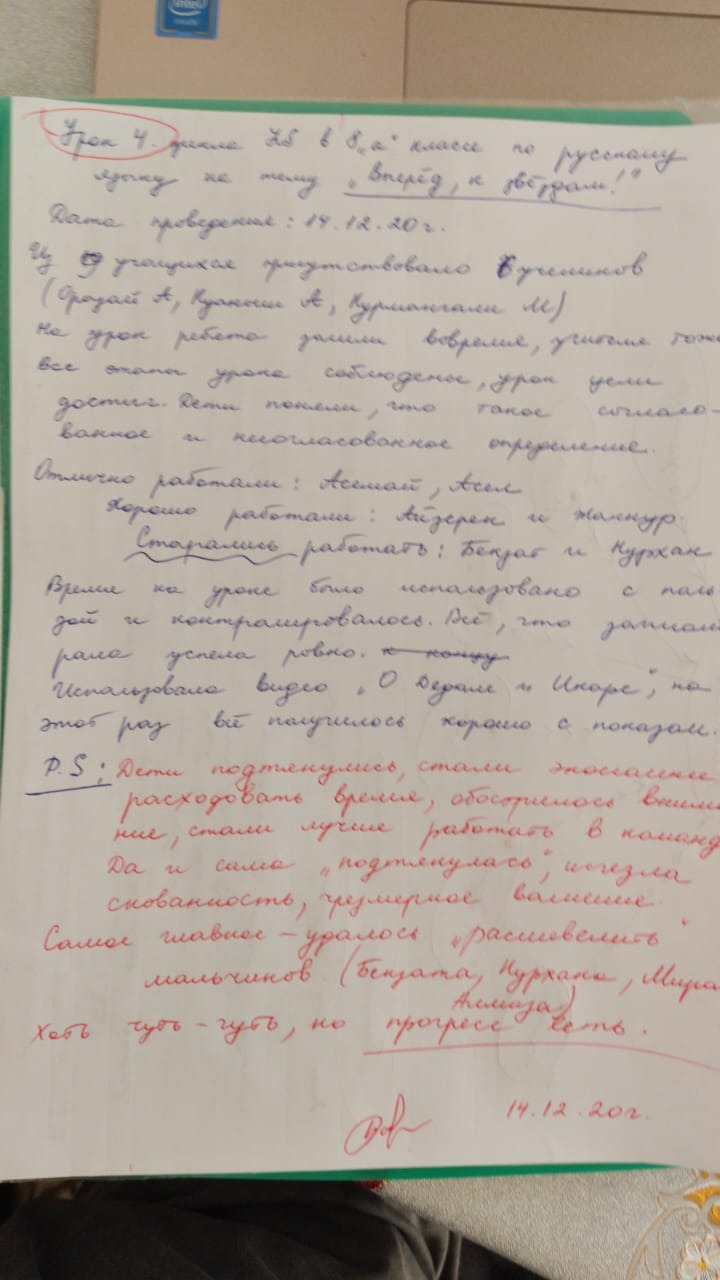 intel
Урок 4. цикла LS в 8 „а“ классе по русскому
языку на тему „Вперёд, к звёздам!“
Дата проведения: 14.12.20г.
Из 9 учащихся присутствовало 6 учеников
(Оразай А, Куаныш А, Курмангали М)
На урок ребята зашли вовремя, учителя тоже
все этапы урока соблюдены, урок цели
достиг. Дети поняли, что такое согласо-
ванное и несогласованное определение.
Отлично работали: Асемай, Асел
Хорошо работали: Айзерек и Жаннур.
Старались работать: Бекзат и Нурхан
Время на уроке было использовано с поль-
зой и контролировалось. Всё, что
успела ровно. к концу
Использовала видео „О Дедале и Икаре“, на
этот раз всё получилось хорошо с показом.
P.S: Дети подтянулись, стали экономнее
расходовать время, обострилось внима
ние, стали лучше работать в команд
Да и сама „подтянулась“, исчезла
скованность, чрезмерное волнение.
Самое главное – удалось „расшевелить“
мальчиков (Бекзата, Нурхана,
Алмаза)
Хоть чуть-чуть, но прогресс есть.
14.12.20г.